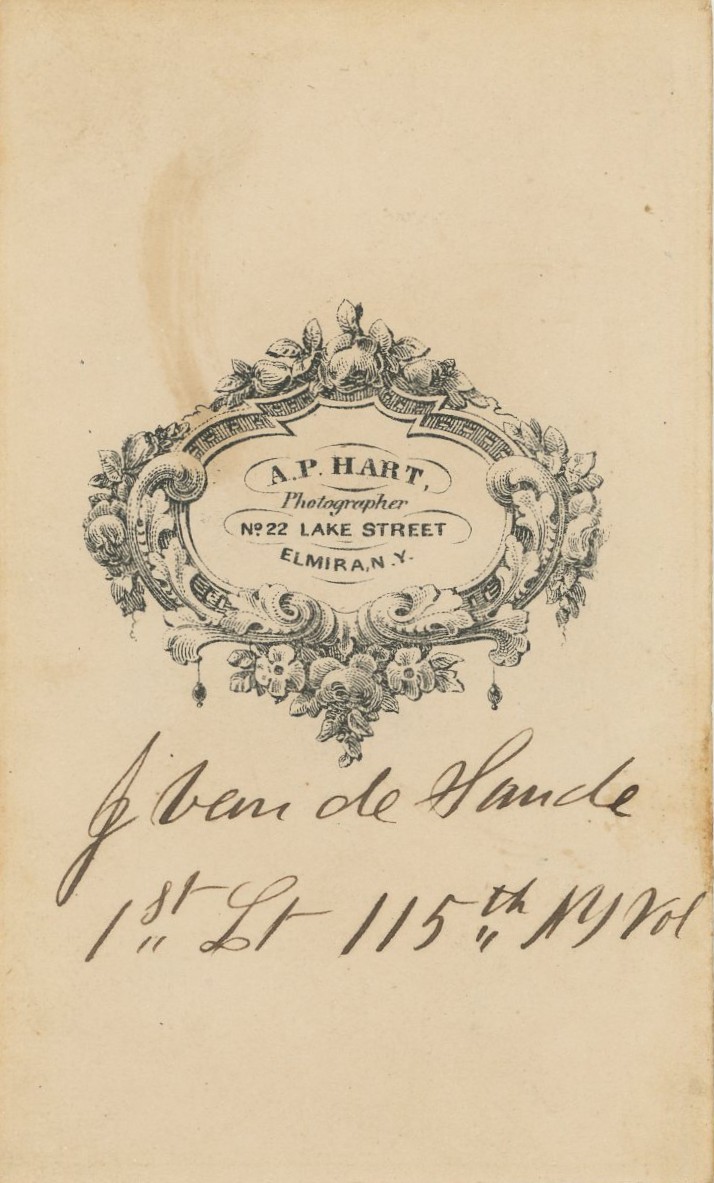 A.P. HART,
Photographer
No 22 LAKE STREET
ELMIRA, N.Y.
J van de Sande
1st Lt 115th NY Vol